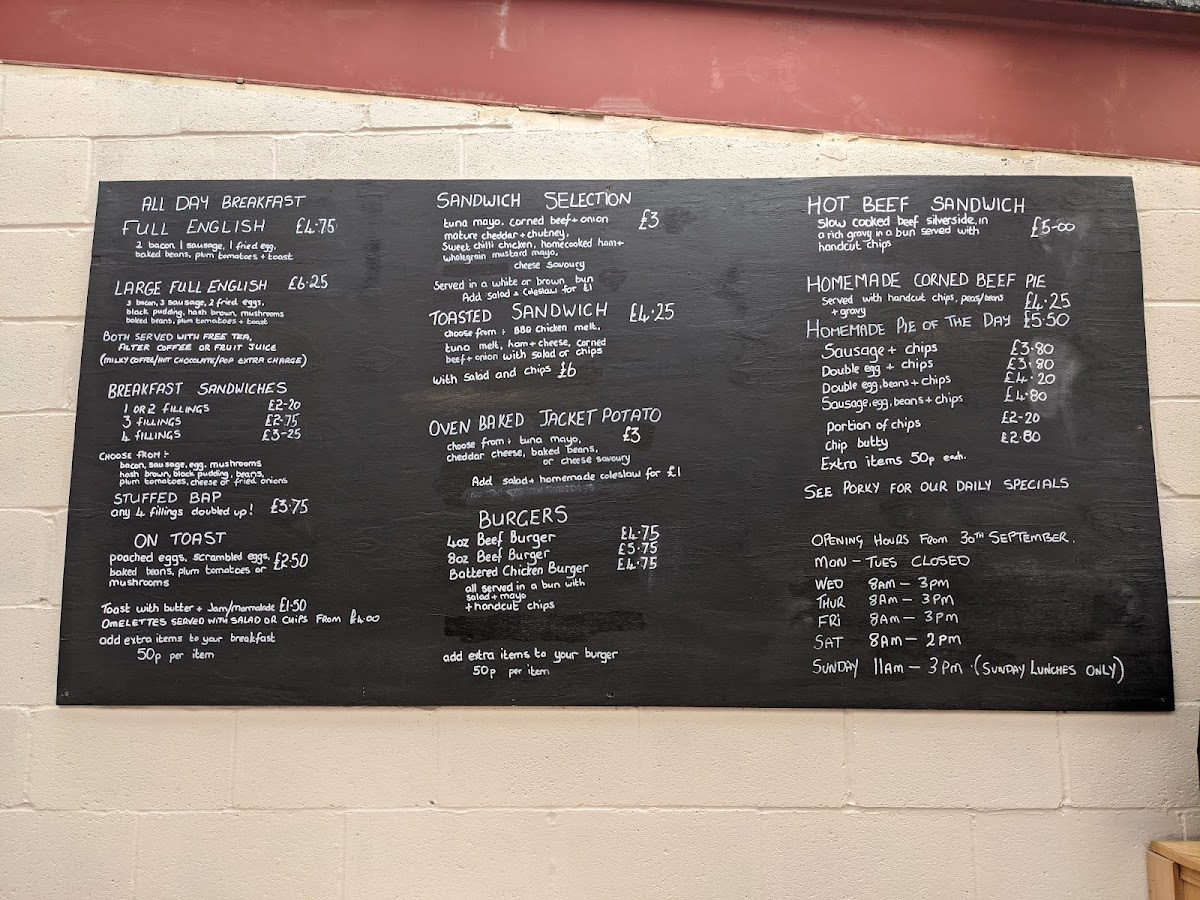 ALL DAY BREAKFAST
FULL ENGLISH £4.75
2 bacon, 1 sausage, 1 fried egg,
baked beans, plum tomatoes + toast
LARGE FULL ENGLISH £6.25
3 bacon, 3 sausage, 2 fried eggs,
black pudding, hash brown, mushrooms
baked beans, plum tomatoes + toast
BOTH SERVED WITH FREE TEA,
FILTER COFFEE OR FRUIT JUICE
(MILKY COFFEE/HOT CHOCOLATE/POP EXTRA CHARGE)
BREAKFAST SANDWICHES
1 OR 2 FILLINGS £2-20
3 FILLINGS £2.75
4 FILLINGS £3-25
CHOOSE FROM:-
bacon, sausage, egg, mushrooms
hash brown, black pudding, beans,
plum tomatoes, cheese or fried onions
STUFFED BAP £3.75
any 4 fillings doubled up!
ON TOAST
poached eggs, scrambled eggs, £2.50
baked beans, plum tomatoes or
mushrooms
Toast with butter + Jam/marmalade £1.50
OMELETTES SERVED WITH SALAD OR CHIPS FROM £4.00
add extra items to your breakfast
50p per item
SANDWICH SELECTION
tuna mayo, corned beef + onion £3
mature cheddar + chutney,
Sweet chilli chicken, homecooked ham +
wholegrain mustard mayo,
cheese savoury
Served in a white or brown bun
Add salad & coleslaw for £1
TOASTED SANDWICH £4.25
choose from: BBQ Chicken melt,
tuna melt, ham + cheese, corned
beef + onion with salad or chips
with salad and chips £6
OVEN BAKED JACKET POTATO
choose from: tuna mayo, £3
cheddar cheese, baked beans,
or cheese savoury
Add salad + homemade coleslaw for £1
BURGERS
4oz Beef Burger £4.75
8oz Beef Burger £5.75
Battered Chicken Burger £4.75
all served in a bun with
salad + mayo
+ handcut chips
add extra items to your burger
50p per item
HOT BEEF SANDWICH
Slow cooked beef silverside, in £5-00
a rich gravy in a bun served with
handcut chips
HOMEMADE CORNED BEEF PIE
served with handcut chips, peas/beans £4.25
+ gravy
HOMEMADE PIE OF THE DAY £5.50
Sausage + chips £3.80
Double egg + chips £3.80
Double egg, beans + chips £4.20
Sausage, egg, beans + chips £4.80
Portion of chips £2-20
Chip butty £2.80
Extra items 50p each.
SEE PORKY FOR OUR DAILY SPECIALS
OPENING HOURS FROM 30TH SEPTEMBER.
MON - TUES CLOSED
WED 8AM - 3PM
THUR 8AM - 3PM
FRI 8AM - 3PM
SAT 8AM - 2PM
SUNDAY 11AM - 3PM (SUNDAY LUNCHES ONLY)